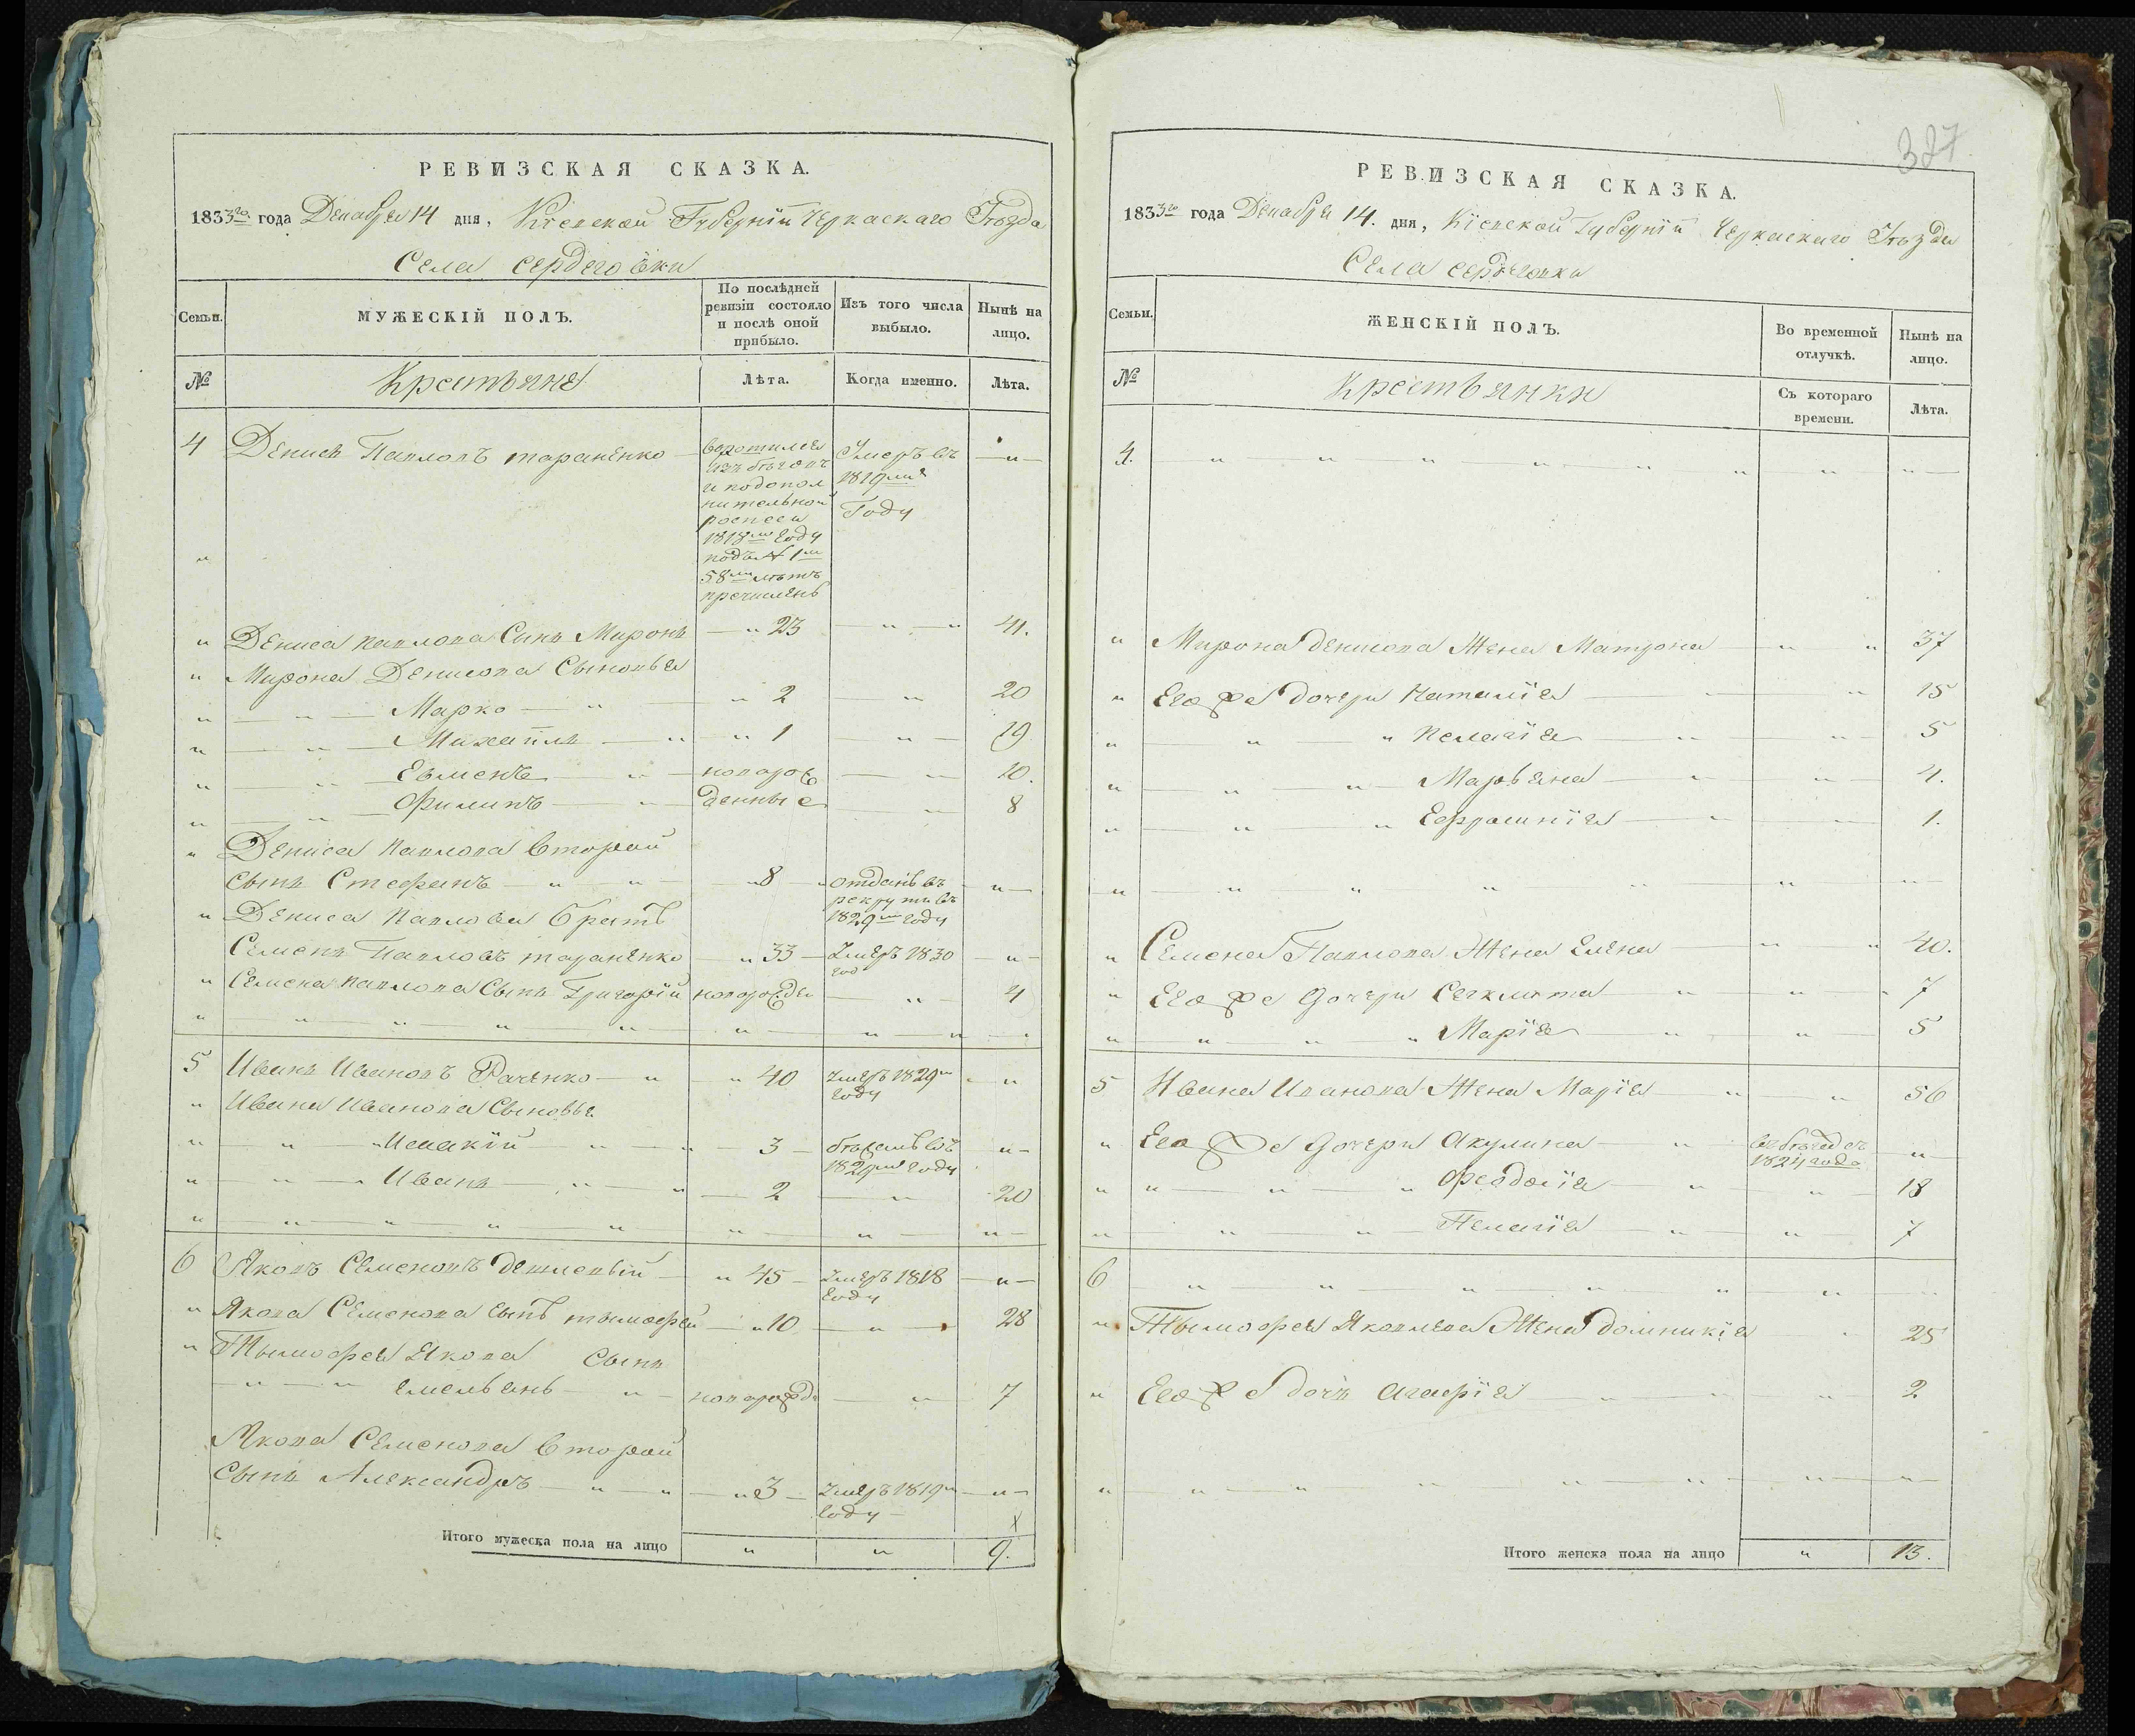 РЕВИЗСКАЯ СКАЗКА.
1833го года Декабря 14 дня, Кіевской Губерніи Черкаскаго Уѣзда
Села Сердеговки
Семьи.
МУЖЕСКІЙ ПОЛЪ.
По послѣдней ревизіи состояло и послѣ оной прибыло.
Изъ того числа выбыло.
Нынѣ на лицо.
№
Крестьяне
Лѣта.
Когда именно.
Лѣта.
4 Денисъ Павловъ тараненко
воротился
изъ бѣговъ
и подопол
нительной
росписи
1818го году
подъ № 1м
58ми лѣтъ
пречисленъ
Умеръ въ
1819мъ
Году
Дениса павлова Сынъ Миронъ 23 41.
Мирона Денисова Сыновья
Марко 2 20
Михаилъ 1 19
Евменъ новорож 10.
Филипъ денные 8
Дениса павлова второй
сынъ Стефанъ 8 отданъ въ
рекруты въ
1829м году
Дениса павлова братъ
Семенъ Павловъ тараненко 33 Умеръ 1830
год
Семена павлова Сынъ Григорій новорожден 4
5 Иванъ Ивановъ Раченко 40 Умеръ 1829м
году
Ивана Иванова Сыновья
Исаакій 3 бѣжалъ въ
1829м году
Иванъ 2 20
6 Яковъ Семеновъ 45 Умеръ 1818
году
Якова Семенова сынъ тымофей 10 28
Тымофея Якова Сынъ
емельянъ новорожд 7
Якова Семенова второй
Сынъ Александръ 3 Умеръ 1819м
году
х
Итого мужеска пола на лицо 9.
327
РЕВИЗСКАЯ СКАЗКА.
1833го года Декабря 14. дня, Кіевской Губерніи Черкаскаго Уѣзда
Села Сердеговки
Семьи.
ЖЕНСКІЙ ПОЛЪ.
Во временной отлучкѣ.
Нынѣ на лицо.
№
Крестьянки
Съ котораго времени.
Лѣта.
4.
Мирона денисова Жена Матрона 37
Его же дочери Наталія 15
пелагія 5
Марьяна 4.
Ефросинія 1.
Семена Павлова Жена Елена 40.
Его же дочери Секлита 7
Марія 5
5 Ивана Иванова Жена Марія 56
Его же дочери Акулина въ бѣгахъ съ
1824 года
Феодосія 18
Пелагія 7
6
Тымофея Яковлева Жена домникія 25
Его же дочь Агафія 2
Итого женска пола на лицо 13.